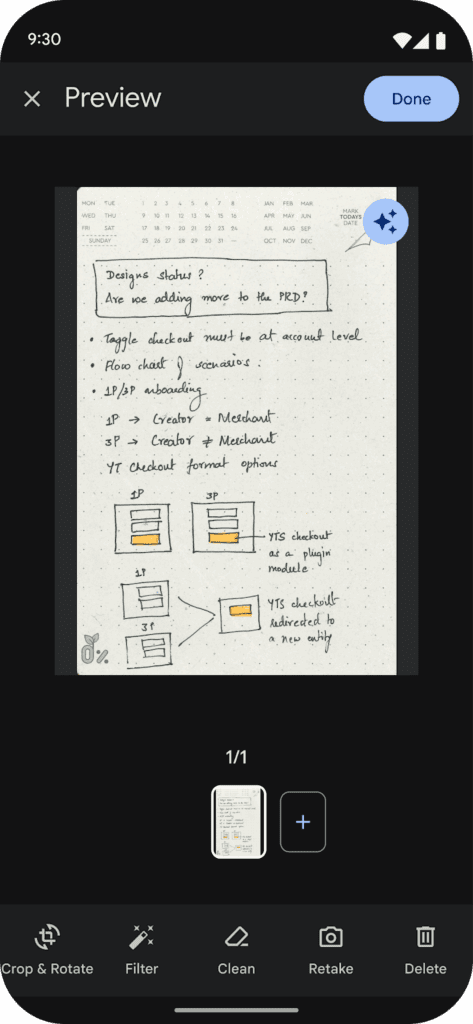 9:30
Preview
Done
MON TUE 1 2 3 4 5 6 7 8 JAN FEB MAR
WED THU 9 10 11 12 13 14 15 16 APR MAY JUN
FRI SAT 17 18 19 20 21 22 23 24 JUL AUG SEP
SUNDAY 25 26 27 28 29 30 31 — OCT NOV DEC
MARK
TODAYS
DATE
Designs status?
Are we adding more to the PRD?
• Toggle checkout must be at account level
• Flow chart of scenarios.
• 1P/3P onboarding
1P → Creator = Merchant
3P → Creator ≠ Merchant
YT Checkout format options
1P 3P
YTS checkout
as a plugin
module
1P
3P
YTS checkout
redirected to
a new entity
0%
1/1
+
Crop & Rotate Filter Clean Retake Delete